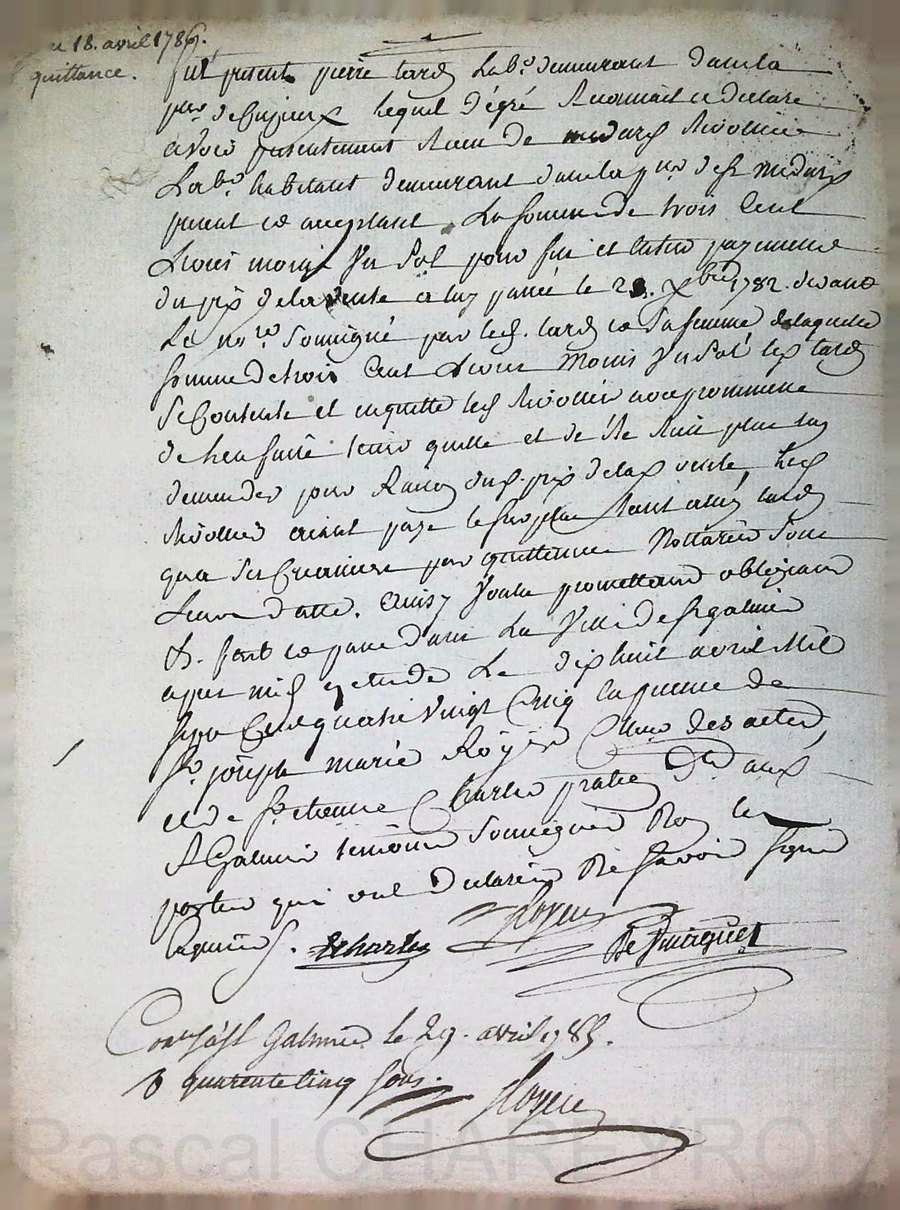 18. avril 1786.
quittance.
fut present pierre tard Lab.r demeurant dans la
par.se de Cuzieux lequel dégré Reconnait et declare
avoir presentement Receu de medard Rivollier
Lab.r habitant demeurant dans la p.sse de St medard
present et acceptant La somme de trois Cent
Livres moins Un Sol pour fin et Entier payement
du prix de la vente a luy passée le 23. Xbre 1782. devant
Le no.re Soussigné par led. tard et sa femme de laquelle
somme de trois Cent Livres Moins Un Sol led tard
Se Contente et en quitte led Rivollier avec promesse
de l'en faire tenir quitte et de ne luy plus rien
demander pour Raison dud. prix de lad vente, led
Rivollier aiant payé le surplus tant aud tard
qua ses Creanciers par quittances Nottariées Sous
Leurs dattes. Ainsy Voulu promettant obligeant
&. fait et passé dans La Ville de St galmier
apres midy Etude Le dix huit avril Mil
sept Cent quatre Vingt Cinq En presence de
Sr. joseph marie Royer Cleur des actes,
et de Sr. etienne Charles pratn. Dts aud
St Galmier temoins Soussignés Non les
parties qui ont declaré Ne Savoir Signer
Enquis &. Echarles Royer
Con.lé à St Galmier le 29. avril 1785.
R quarente cinq sous.
Royer
Pascal CHAREYRON